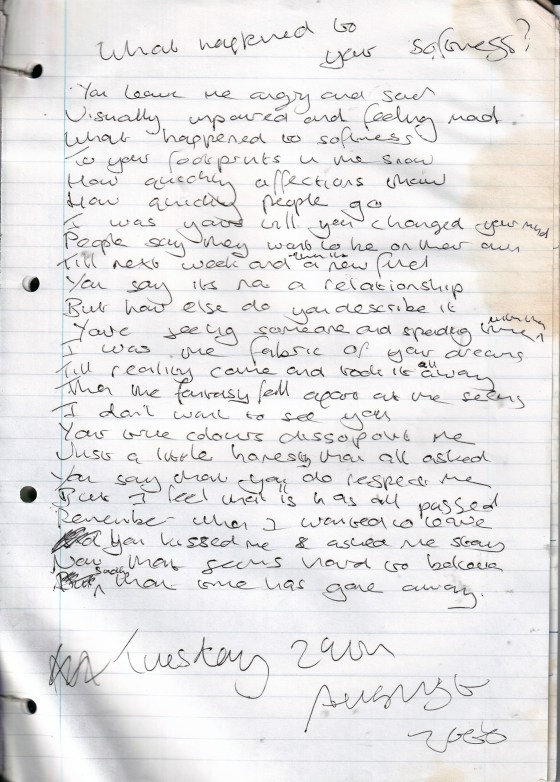 What happened to
your softness?
You leave me angry and sad
Visually impaired and feeling mad
What happened to softness
To your footprints in the snow
How quickly affections thaw
How quickly people go
I was yours till you changed your mind
People say they want to be on their own
Till next week and a new find
You say its not a relationship
But how else do you describe it
Youre seeing someone and spending time
I was the fabric of your dreams
Till reality came and took it all away
Then the fantasy fell apart at the seams
I don't want to see you
Your true colours dissapoint me
Just a little honesty that all asked
You say that you do respect me
But I feel that is has all passed
Remember when I wanted to leave
You kissed me & asked me stay
Now that seems hard to believe
sadly that time has gone away.
Tuesday 29th
August
2006